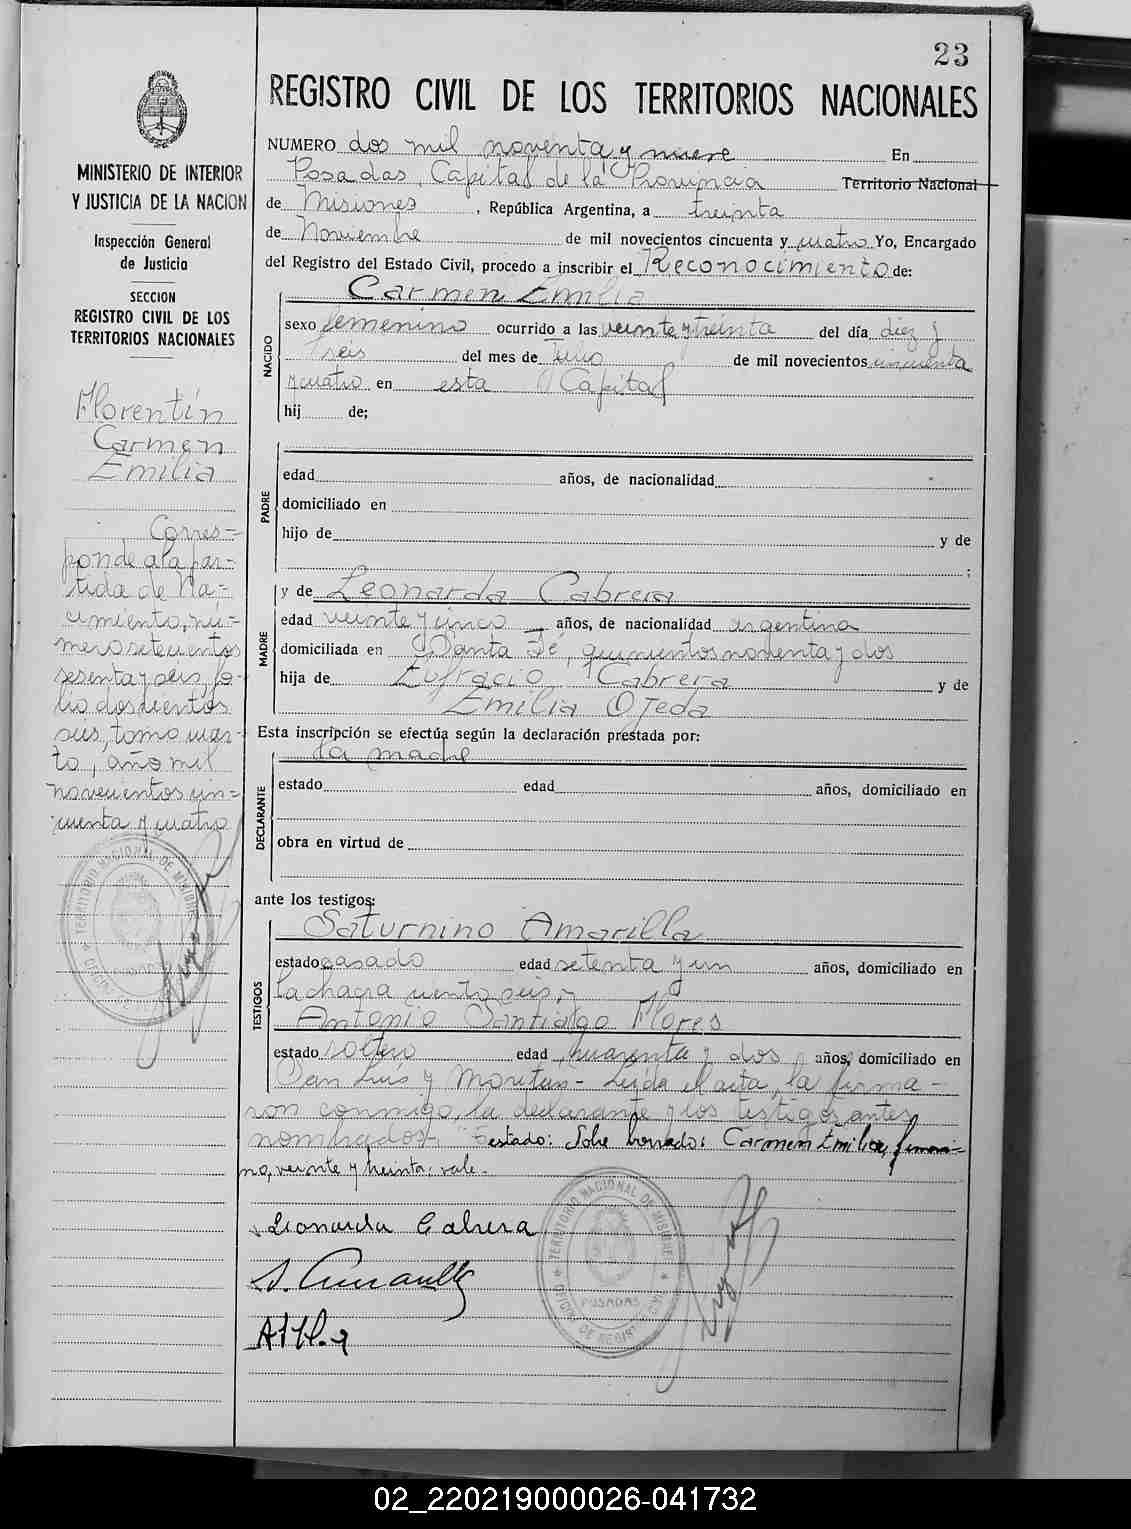 23
REGISTRO CIVIL DE LOS TERRITORIOS NACIONALES
MINISTERIO DE INTERIOR
Y JUSTICIA DE LA NACION
Inspección General
de Justicia
SECCION
REGISTRO CIVIL DE LOS
TERRITORIOS NACIONALES
Florentín
Carmen
Emilia
Corres=
ponde a la par-
tida de Na-
cimiento, nú-
mero setecientos
sesenta y seis, fo-
lio doscientos
seis, tomo cuar-
to, año mil
novecientos cin=
cuenta y cuatro
NUMERO dos mil noventa y nueve En
Posadas, Capital de la Provincia Territorio Nacional
de Misiones, República Argentina, a treinta
de Noviembre de mil novecientos cincuenta y cuatro Yo, Encargado
del Registro del Estado Civil, procedo a inscribir el Reconocimiento de:
Carmen Emilia
NACIDO
sexo femenino ocurrido a las veinte y treinta del día diez y
treis del mes de Julio de mil novecientos cincuenta
y cuatro en esta Capital
hij de;
PADRE
edad años, de nacionalidad
domiciliado en
hijo de y de
;
MADRE
y de Leonarda Cabrera
edad veinte y cinco años, de nacionalidad argentina
domiciliada en Santa Fé, quinientos noventa y dos
hija de Eufracio Cabrera y de
Emilia Ojeda
Esta inscripción se efectúa según la declaración prestada por:
la madre
DECLARANTE
estado edad años, domiciliado en
obra en virtud de
ante los testigos:
TESTIGOS
Saturnino Amarilla
estado casado edad setenta y un años, domiciliado en
la chacra ciento seis, y
Antonio Santiago Flores
estado soltero edad cuarenta y dos años, domiciliado en
San Luis y Moritan- Leida el acta, la firma-
ron conmigo, la declarante y los testigos antes
nombrados- Testado: Sobre borrado: Carmen Emilia, femeni-
no, veinte y treinta: vale.
Leonarda Cabrera
S. Amarilla
TERRITORIO NACIONAL DE MISIONES
POSADAS
02_220219000026-041732